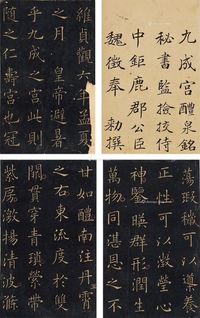 九成宮醴泉銘
秘書監檢校侍
中鉅鹿郡公臣
魏徵奉 勅撰
維貞觀六年孟夏
之月 皇帝避暑
乎九成之宮此則
隨之仁壽宮也冠
甘如醴南注丹霄
之右東流度於雙
闕貫穿青瑣縈帶
紫房激揚清波滌
蕩瑕穢可以導養
正性可以澂瑩心
神鑒暎群形潤生
萬物同湛恩之不